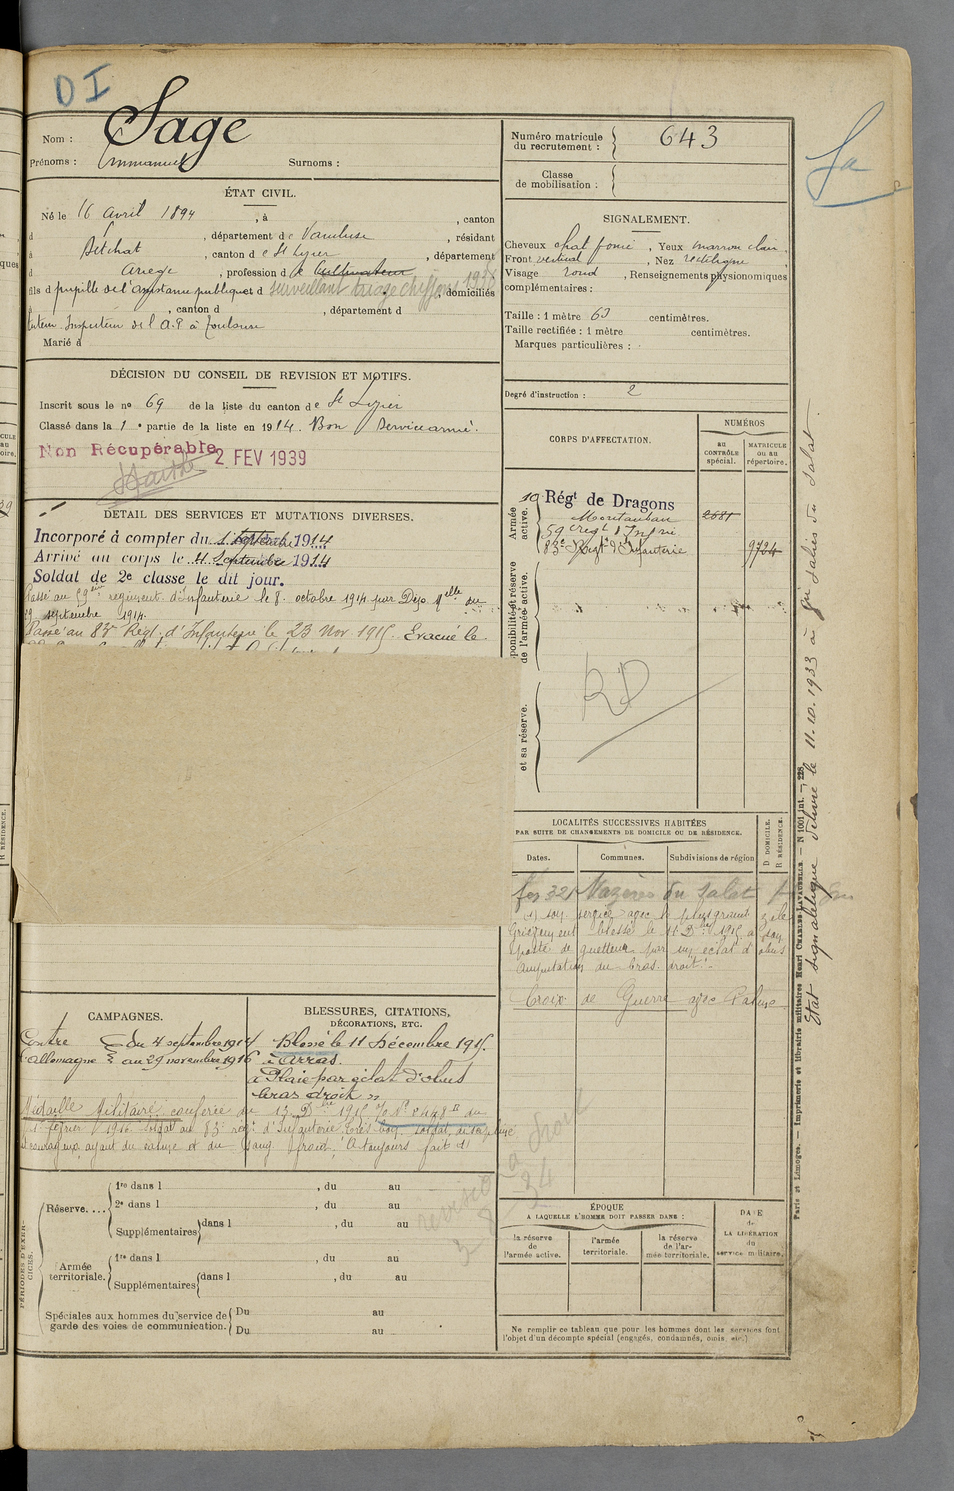 DI
Nom : Sage
Prénoms : Emmanuel Surnoms :
ÉTAT CIVIL.
Né le 16 Avril 1894, à , canton
d , département de Vaucluse, résidant
à Betchat, canton de St Lizier, département
d Ariège, profession de Cultivateur
fils d pupille de l'assistance publique et d surveillant triage chiffons 1938, domiciliés
à , canton d , département d
tuteur Inspecteur de l'A.P. à Toulouse
Marié à
DÉCISION DU CONSEIL DE REVISION ET MOTIFS.
Inscrit sous le no 69 de la liste du canton de St Lizier
Classé dans la 1e partie de la liste en 1914. Bon Service armé.
Non Récupérable 2 FEV 1939
DÉTAIL DES SERVICES ET MUTATIONS DIVERSES.
Incorporé à compter du Septembre 1914
Arrivé au corps le Septembre 1914
Soldat de 2e classe le dit jour.
Passé au 59eme régiment d'Infanterie le 8 octobre 1914 par Dépo. Mlle du
29 septembre 1914.
Passé au 83e Régt d'Infanterie le 23 Nov 1915. Evacué le
CAMPAGNES.
Contre du 4 septembre 1914
l'allemagne au 29 novembre 1916
BLESSURES, CITATIONS,
DÉCORATIONS, ETC.
Blessé le 11 Décembre 1915.
à Arras.
Plaie par éclat d'obus
bras droit
Médaille Militaire conférée du 13 Dbre 1915 JO No 8448 du
1er février 1916. Soldat au 83e rég. d'Infanterie. Très bon soldat, discipliné
courageux, ayant du calme et du sang froid. A toujours fait
PÉRIODES D'EXERCICES.
Réserve....
1re dans l , du au
2e dans l , du au
Supplémentaires dans l , du au
Armée territoriale.
1re dans l , du au
Supplémentaires dans l , du au
Spéciales aux hommes du service de garde des voies de communication.
Du au
Du au
Numéro matricule du recrutement : 643
Classe de mobilisation :
SIGNALEMENT.
Cheveux chat foncé, Yeux marron clair,
Front vertical, Nez rectiligne,
Visage rond, Renseignements physionomiques
complémentaires :
Taille : 1 mètre 63 centimètres.
Taille rectifiée : 1 mètre centimètres.
Marques particulières :
Degré d'instruction : 2
CORPS D'AFFECTATION.
NUMÉROS
au CONTRÔLE spécial.
MATRICULE ou au répertoire.
Armée active.
10 Régt de Dragons
Montauban
59e régt d'Infrie
83e Régt d'Infanterie 9724
RD
et sa réserve.
LOCALITÉS SUCCESSIVES HABITÉES
PAR SUITE DE CHANGEMENTS DE DOMICILE OU DE RÉSIDENCE.
Dates.
Communes.
Subdivisions de région
D DOMICILE.
R RÉSIDENCE.
Mazères du Salat
son service avec le plus grand zèle
Grièvement blessé le 11 Dbre 1915 à son
poste de guetteur par un éclat d'obus
Amputation du bras droit.
Croix de Guerre avec Palme
ÉPOQUE
A LAQUELLE L'HOMME DOIT PASSER DANS :
la réserve de l'armée active.
l'armée territoriale.
la réserve de l'armée territoriale.
DATE de LA LIBÉRATION du service militaire.
Ne remplir ce tableau que pour les hommes dont les services font
l'objet d'un décompte spécial (engagés, condamnés, omis, etc.)
Sa
Etat signalétique délivré le 11.10.1933 à
Paris et Limoges. — Imprimerie et librairie militaires Henri CHARLES-LAVAUZELLE. — N 1001 int. — 228